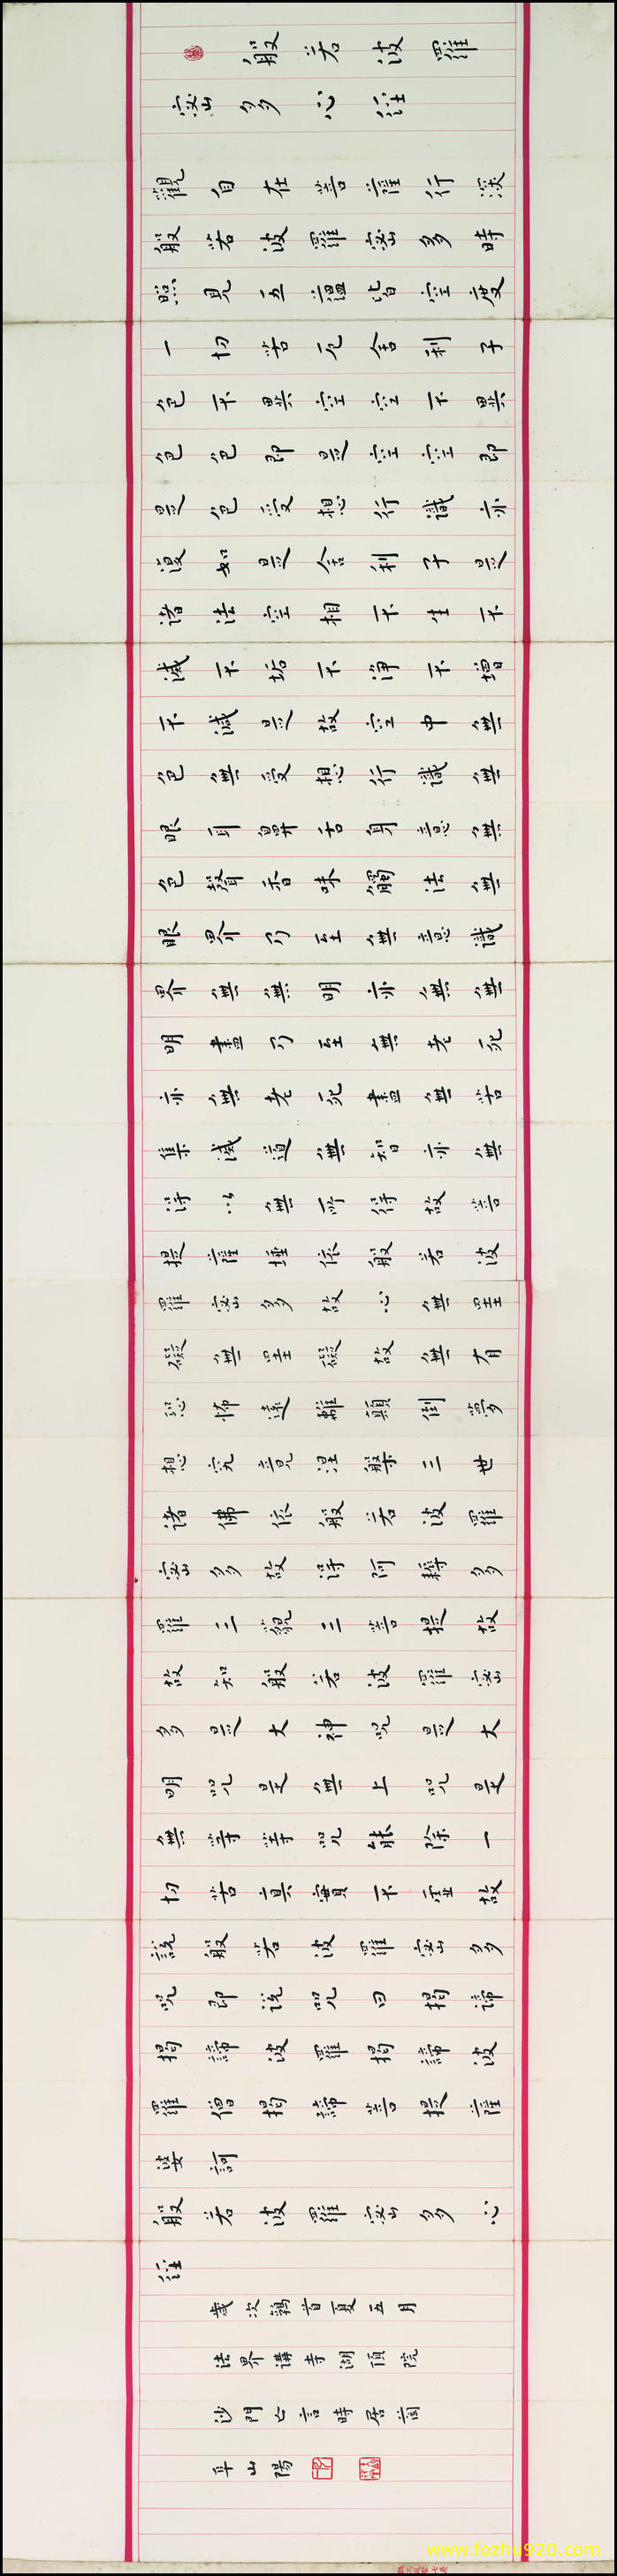 般若波羅
蜜多心經
觀自在菩薩行深
般若波羅蜜多時
照見五蘊皆空度
一切苦厄舍利子
色不異空空不異
色色即是空空即
是色受想行識亦
復如是舍利子是
諸法空相不生不
滅不垢不淨不增
不減是故空中無
色無受想行識無
眼耳鼻舌身意無
色聲香味觸法無
眼界乃至無意識
界無無明亦無無
明盡乃至無老死
亦無老死盡無苦
集滅道無智亦無
得以無所得故菩
提薩埵依般若波
羅蜜多故心無罣
礙無罣礙故無有
恐怖遠離顛倒夢
想究竟涅槃三世
諸佛依般若波羅
蜜多故得阿耨多
羅三藐三菩提故
故知般若波羅蜜
多是大神咒是大
明咒是無上咒是
無等等咒能除一
切苦真實不虛故
說般若波羅蜜多
咒即說咒曰揭諦
揭諦波羅揭諦波
羅僧揭諦菩提薩
婆訶
般若波羅蜜多心
經
歲次鶉首夏五月
法界講寺湖頂院
沙門亡言時居菌
阜山陽
www.fozhu920.com